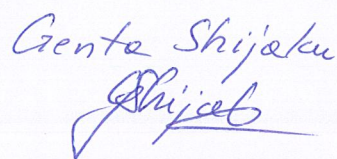 Genta Shijaku
GShijak